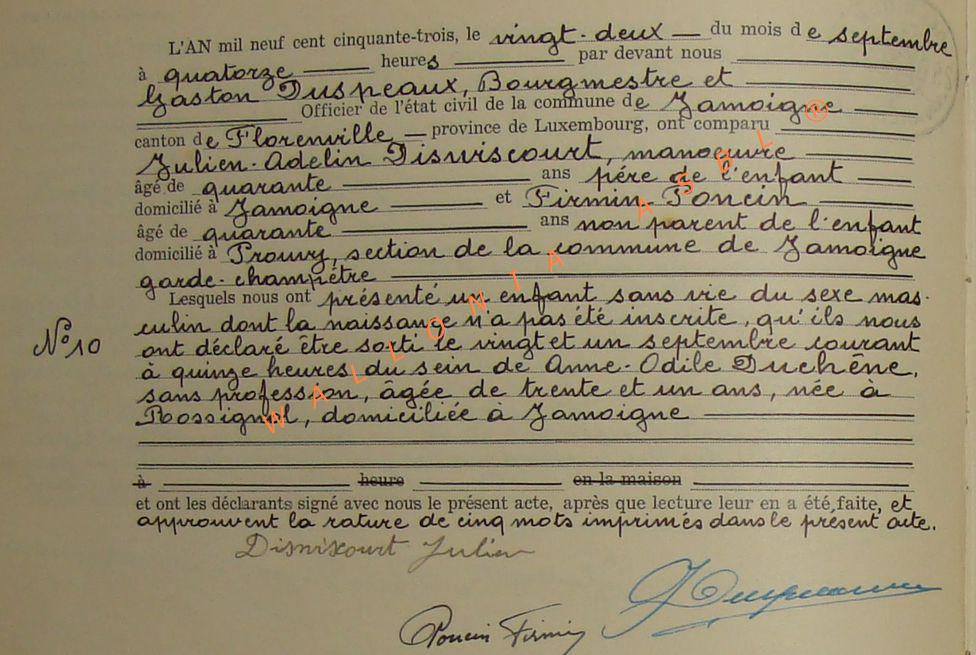 L'AN mil neuf cent cinquante-trois, le vingt-deux — du mois de septembre
à quatorze heures par devant nous
Gaston Duspeaux, Bourgmestre et
Officier de l'état civil de la commune de Jamoigne
canton de Florenville — province de Luxembourg, ont comparu
Julien-Adelin Disviscourt, manoeuvre
âgé de quarante ans père de l'enfant
domicilié à Jamoigne et Firmin Poncin
âgé de quarante ans non parent de l'enfant
domicilié à Prouvy, section de la commune de Jamoigne
garde-champêtre
Lesquels nous ont présenté un enfant sans vie du sexe mas-
culin dont la naissance n'a pas été inscrite, qu'ils nous
N° 10
ont déclaré être sorti le vingt et un septembre courant
à quinze heures du sein de Anne-Odile Duchêne,
sans profession, âgée de trente et un ans, née à
Rossignol, domiciliée à Jamoigne
à heure en la maison
et ont les déclarants signé avec nous le présent acte, après que lecture leur en a été faite, et
approuvent la rature de cinq mots imprimés dans le présent acte.
Disviscourt Julien
Poncin Firmin
WALLONIA ASBL ®